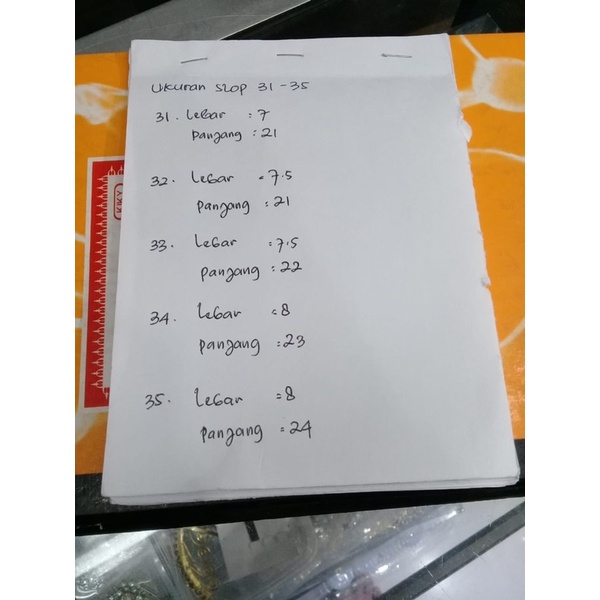 Ukuran Slop 31 - 35
31. Lebar : 7
Panjang : 21
32. Lebar : 7.5
Panjang : 21
33. Lebar : 7.5
Panjang : 22
34. Lebar : 8
Panjang : 23
35. Lebar : 8
Panjang : 24
KIKY